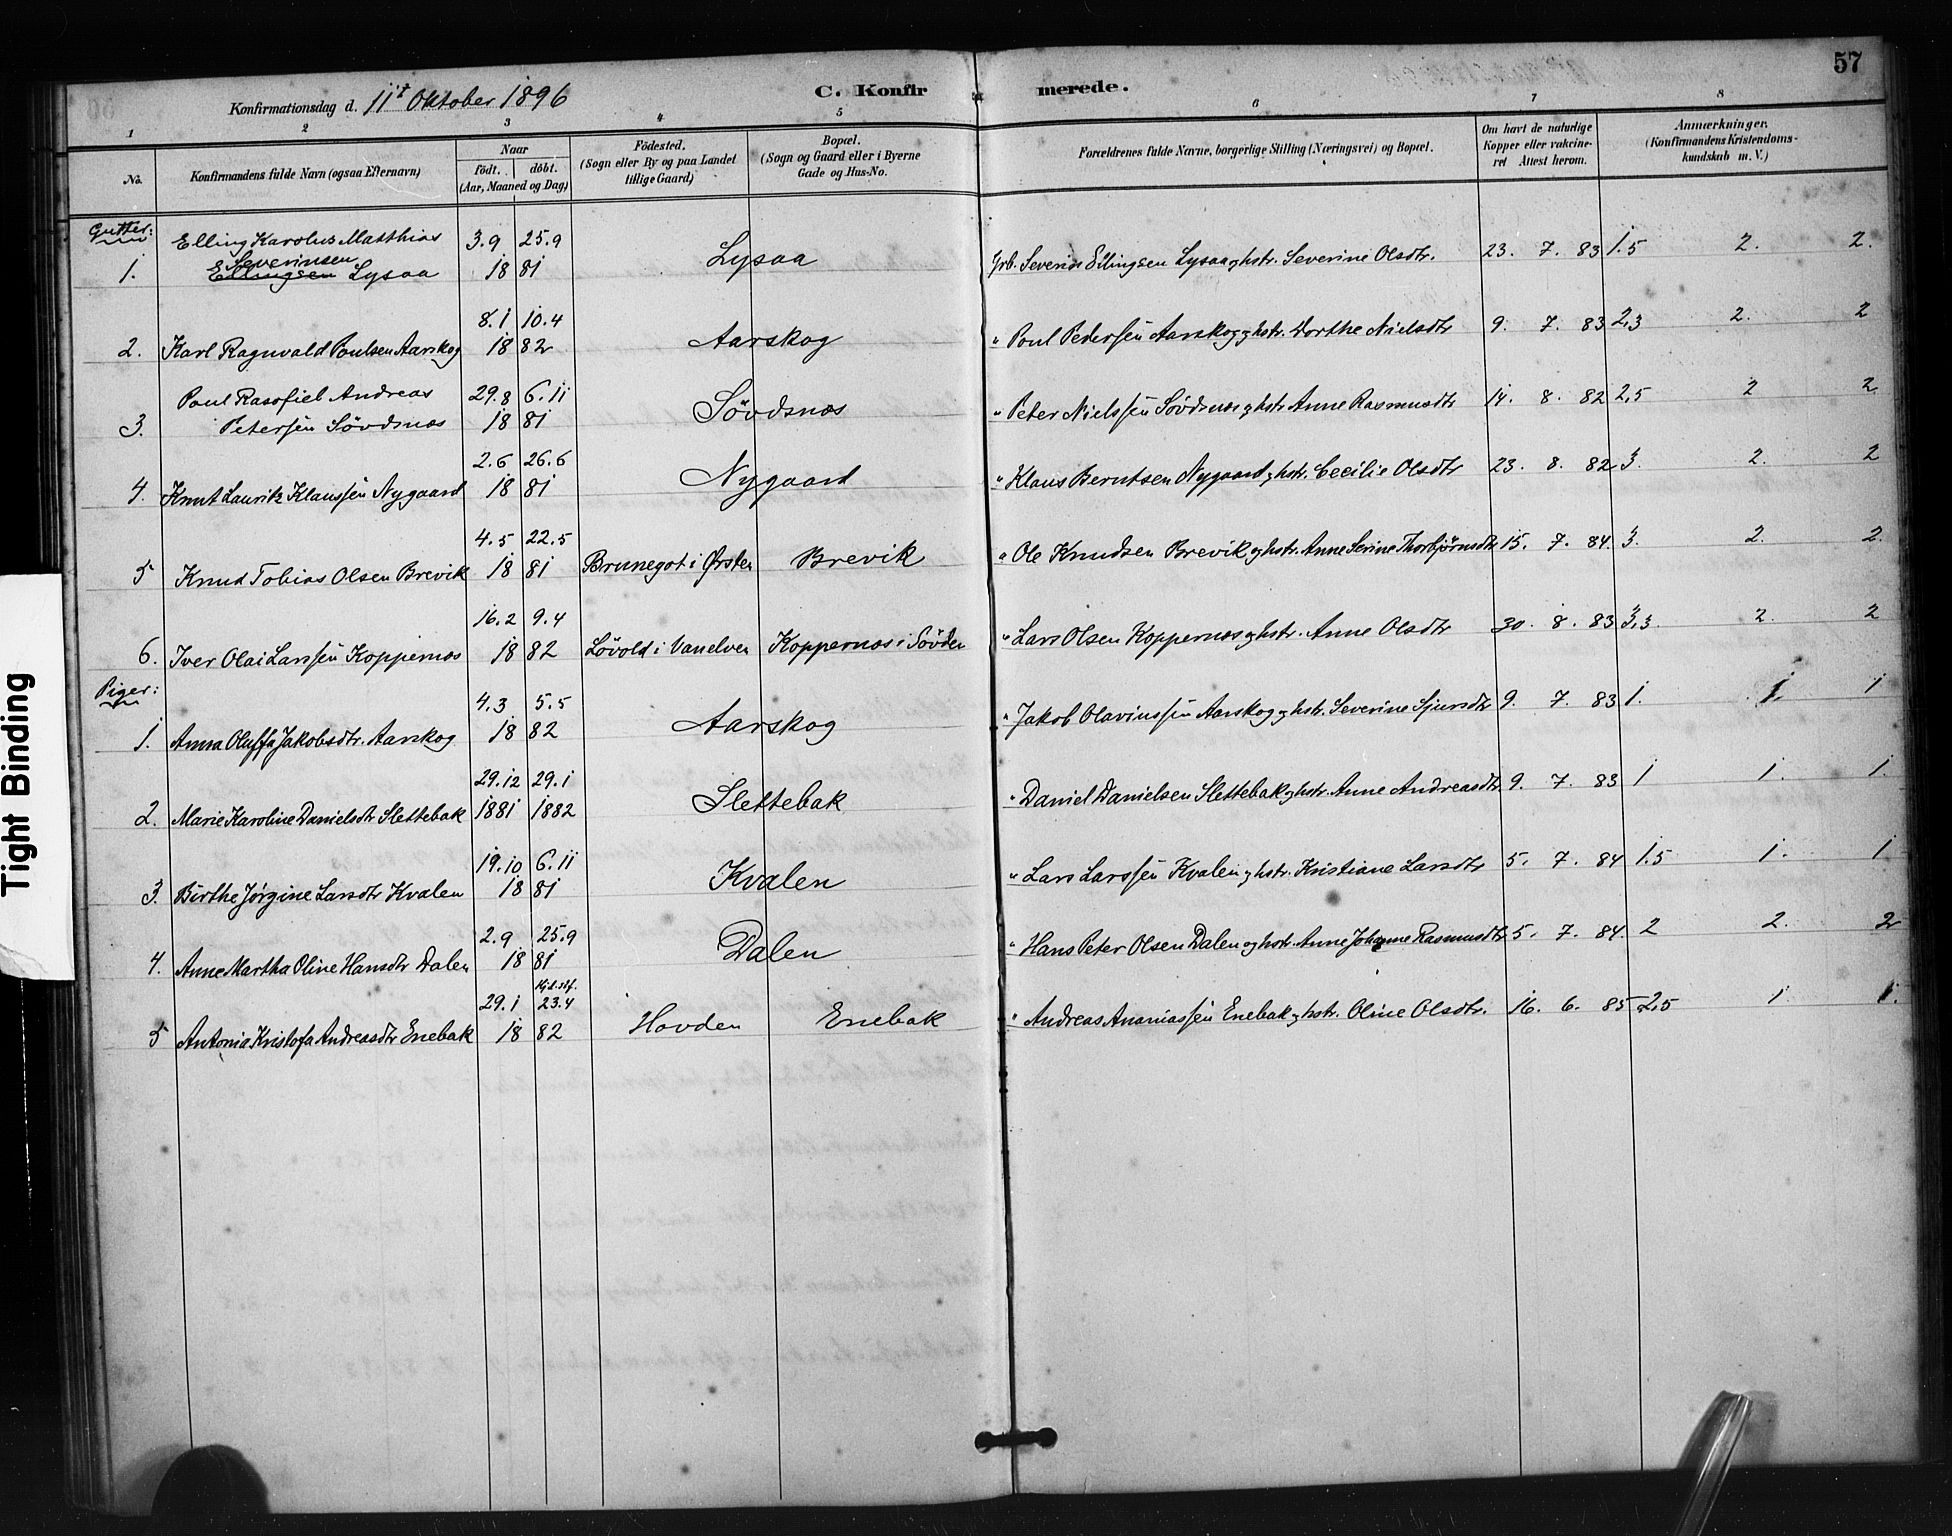 57
Konfirmationsdag d. 11t Oktober 1896
C. Konfirmerede.
1 2 3 4 5 6 7 8
No.
Konfirmandens fulde Navn (ogsaa Efternavn)
Naar
födt. döbt.
(Aar, Maaned og Dag)
Födested.
(Sogn eller By og paa Landet
tillige Gaard)
Bopæl.
(Sogn og Gaard eller i Byerne
Gade og Hus-No.
Forældrenes fulde Navne, borgerlige Stilling (Næringsvei) og Bopæl.
Om havt de naturlige
Kopper eller vakcine-
ret Attest herom.
Anmærkninger.
(Konfirmandens Kristendoms-
kundskab m. V.)
Gutter:
Elling Karolus Matthias 3.9 25.9
Severinsen
1. Ellingsen Lysaa 18 81 Lysaa Grb. Severin Ellingsen Lysaa og hstr. Severine Olsdtr. 23. 7. 83 1.5 2. 2.
8.1 10.4
2. Karl Ragnvald Poulsen Aarskog 18 82 Aarskog " Poul Pedersen Aarskog og hstr. Dorthe Nielsdtr 9. 7. 83 2,3 2. 2
Poul Rasofiel Andreas 29.8 6.11
3. Petersen Sövdsnæs 18 81 Sövdsnæs " Peter Nielssen Sövdsnæs og hstr Anne Rasmusdtr 14. 8. 82 2,5 2 2
2.6 26.6
4. Knut Laurits Klaussen Nygaard 18 81 Nygaard " Klaus Berntsen Nygaard og hstr. Cecilie Olsdtr 23. 8. 82 3. 2. 2
4.5 22.5
5 Knud Tobias Olsen Brevik 18 81 Brunegot i Ørsten Brevik " Ole Knudsen Brevik og hstr. Anne Serine Thorbjørnsdtr 15. 7. 84. 3. 2. 2.
16.2 9.4
6. Iver Olai Larssen Koppernæs 18 82 Lövold i Vanelven Koppernæs i Sövden " Lars Olsen Koppernæs og hstr. Anne Olsdtr 30. 8. 83 3,3. 2. 2
Piger:
4.3 5.5
1. Anna Oluffa Jakobsdtr. Aarskog 18 82 Aarskog " Jakob Olavinssen Aarskog og hstr. Severine Sjursdtr 9. 7. 83 1. 1. 1
29.12 29.1
2. Marie Karoline Danielsdtr Slettebak 1881 1882 Slettebak " Daniel Danielsen Slettebak og hstr. Anne Andreasdtr 9. 7. 83 1 1. 1.
19.10 6.11
3. Birthe Jørgine Larsdtr Kvalen 18 81 Kvalen " Lars Larssen Kvalen og hstr. Kristiane Larsdtr 5. 7. 84 1.5 1. 1
2.9 25.9
4. Anne Martha Oline Hansdtr Dalen 18 81 Dalen " Hans Peter Olsen Dalen og hstr. Anne Johanne Rasmusdtr 5. 7. 84. 2 2. 2
29.1 23.4
5 Antonia Kristofa Andreasdtr Enebak 18 82 Hovden Enebak " Andreas Ananiassen Enebak og hstr. Oline Olsdtr. 16. 6. 85 2,5 1 1.
Tight Binding